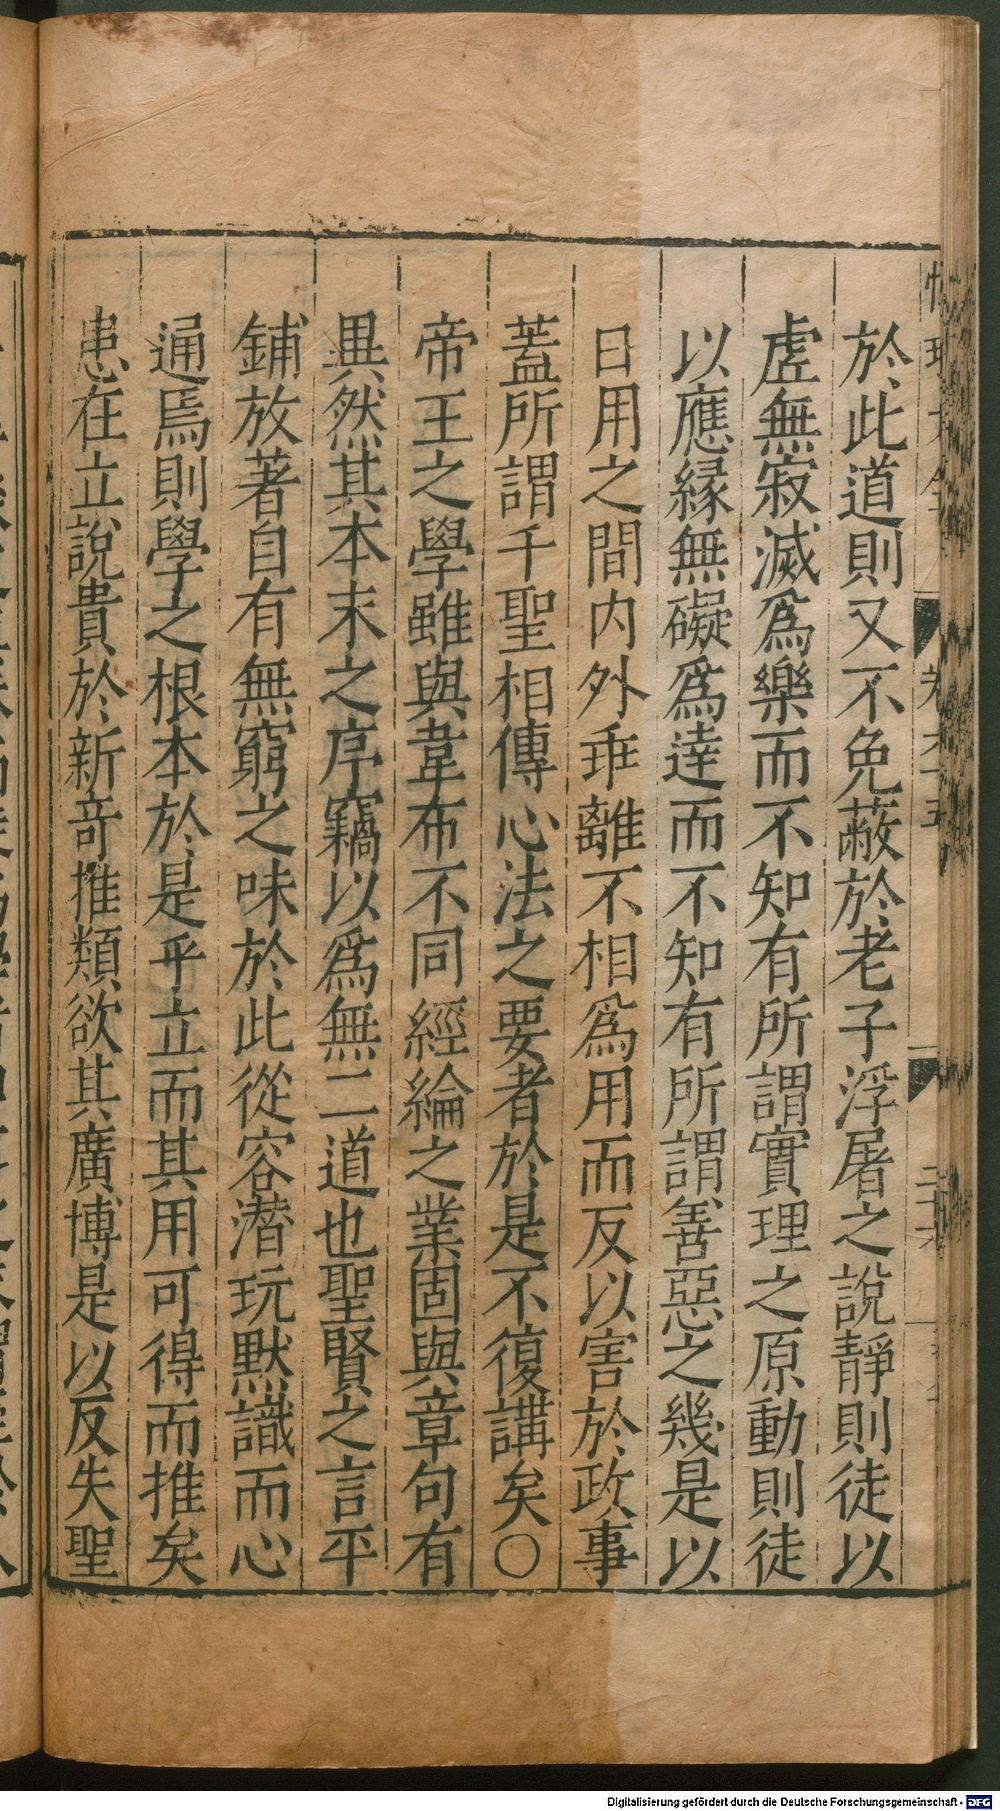 於此道則又不免蔽於老子浮屠之說靜則徒以
虛無寂滅爲樂而不知有所謂實理之原動則徒
以應緣無礙爲達而不知有所謂善惡之幾是以
日用之間内外乖離不相爲用而反以害於政事
蓋所謂千聖相傳心法之要者於是不復講矣○
帝王之學雖與韋布不同經綸之業固與章句有
異然其本末之序竊以爲無二道也聖賢之言平
鋪放著自有無窮之味於此從容潛玩默識而心
通焉則學之根本於是乎立而其用可得而推矣
患在立說貴於新奇推類欲其廣博是以反失聖
Digitalisierung gefördert durch die Deutsche Forschungsgemeinschaft - DFG